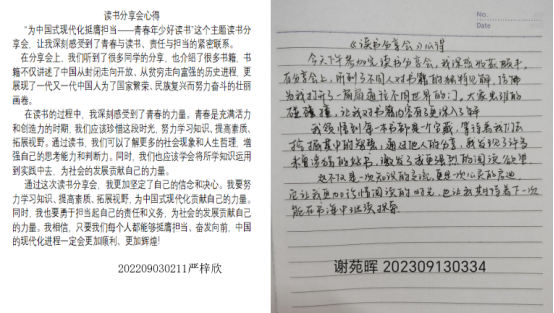 读书分享会心得
“为中国式现代化挺膺担当——青春年少好读书”这个主题读书分
享会，让我深刻感受到了青春与读书、责任与担当的紧密联系。
在分享会上，我们听到了很多同学的分享，也介绍了很多书籍，书
籍不仅讲述了中国从封闭走向开放、从贫穷走向富强的历史进程，更
展现了一代又一代中国人为了国家繁荣、民族复兴而努力奋斗的壮丽
画卷。
在读书的过程中，我深刻感受到了青春的力量。青春是充满活力
和创造力的时期，我们应该珍惜这段时光，努力学习知识，提高素质，
拓展视野。通过读书，我们可以了解更多的社会现象和人生哲理，增
强自己的思考能力和判断力。同时，我们也应该学会将所学知识运用
到实践中去，为社会的发展贡献自己的力量。
通过这次读书分享会，我更加坚定了自己的信念和决心。我要努
力学习知识、提高素质、拓展视野，为中国式现代化贡献自己的力量。
同时，我也要勇于担当起自己的责任和义务，为社会的发展贡献自己
的力量。我相信，只要我们每个人都能够挺膺担当、奋发向前，中国
的现代化进程一定会更加顺利、更加辉煌！
202209030211严梓欣
No.
Date
《读书分享会》心得
今天下午参加完读书分享会，我深感收获颇丰。
在分享会上，听到了不同人对书籍的独特见解，仿佛
为我打开了一扇扇通往不同世界的门。大家思维的
碰撞，让我对书籍内容有了更深入了解
我领悟到每一本书都是一个宝藏，等待着我们去
挖掘其中的智慧。通过他人的分享，我发现了许多
未曾读过的好书，激发了我更强烈的阅读欲望。
这不仅是一次知识的交流，更是一次心灵的启迪。
它让我更加珍惜阅读的时光，也让我期待着下一次
能在书海中继续探索
谢苑晖 202309130334